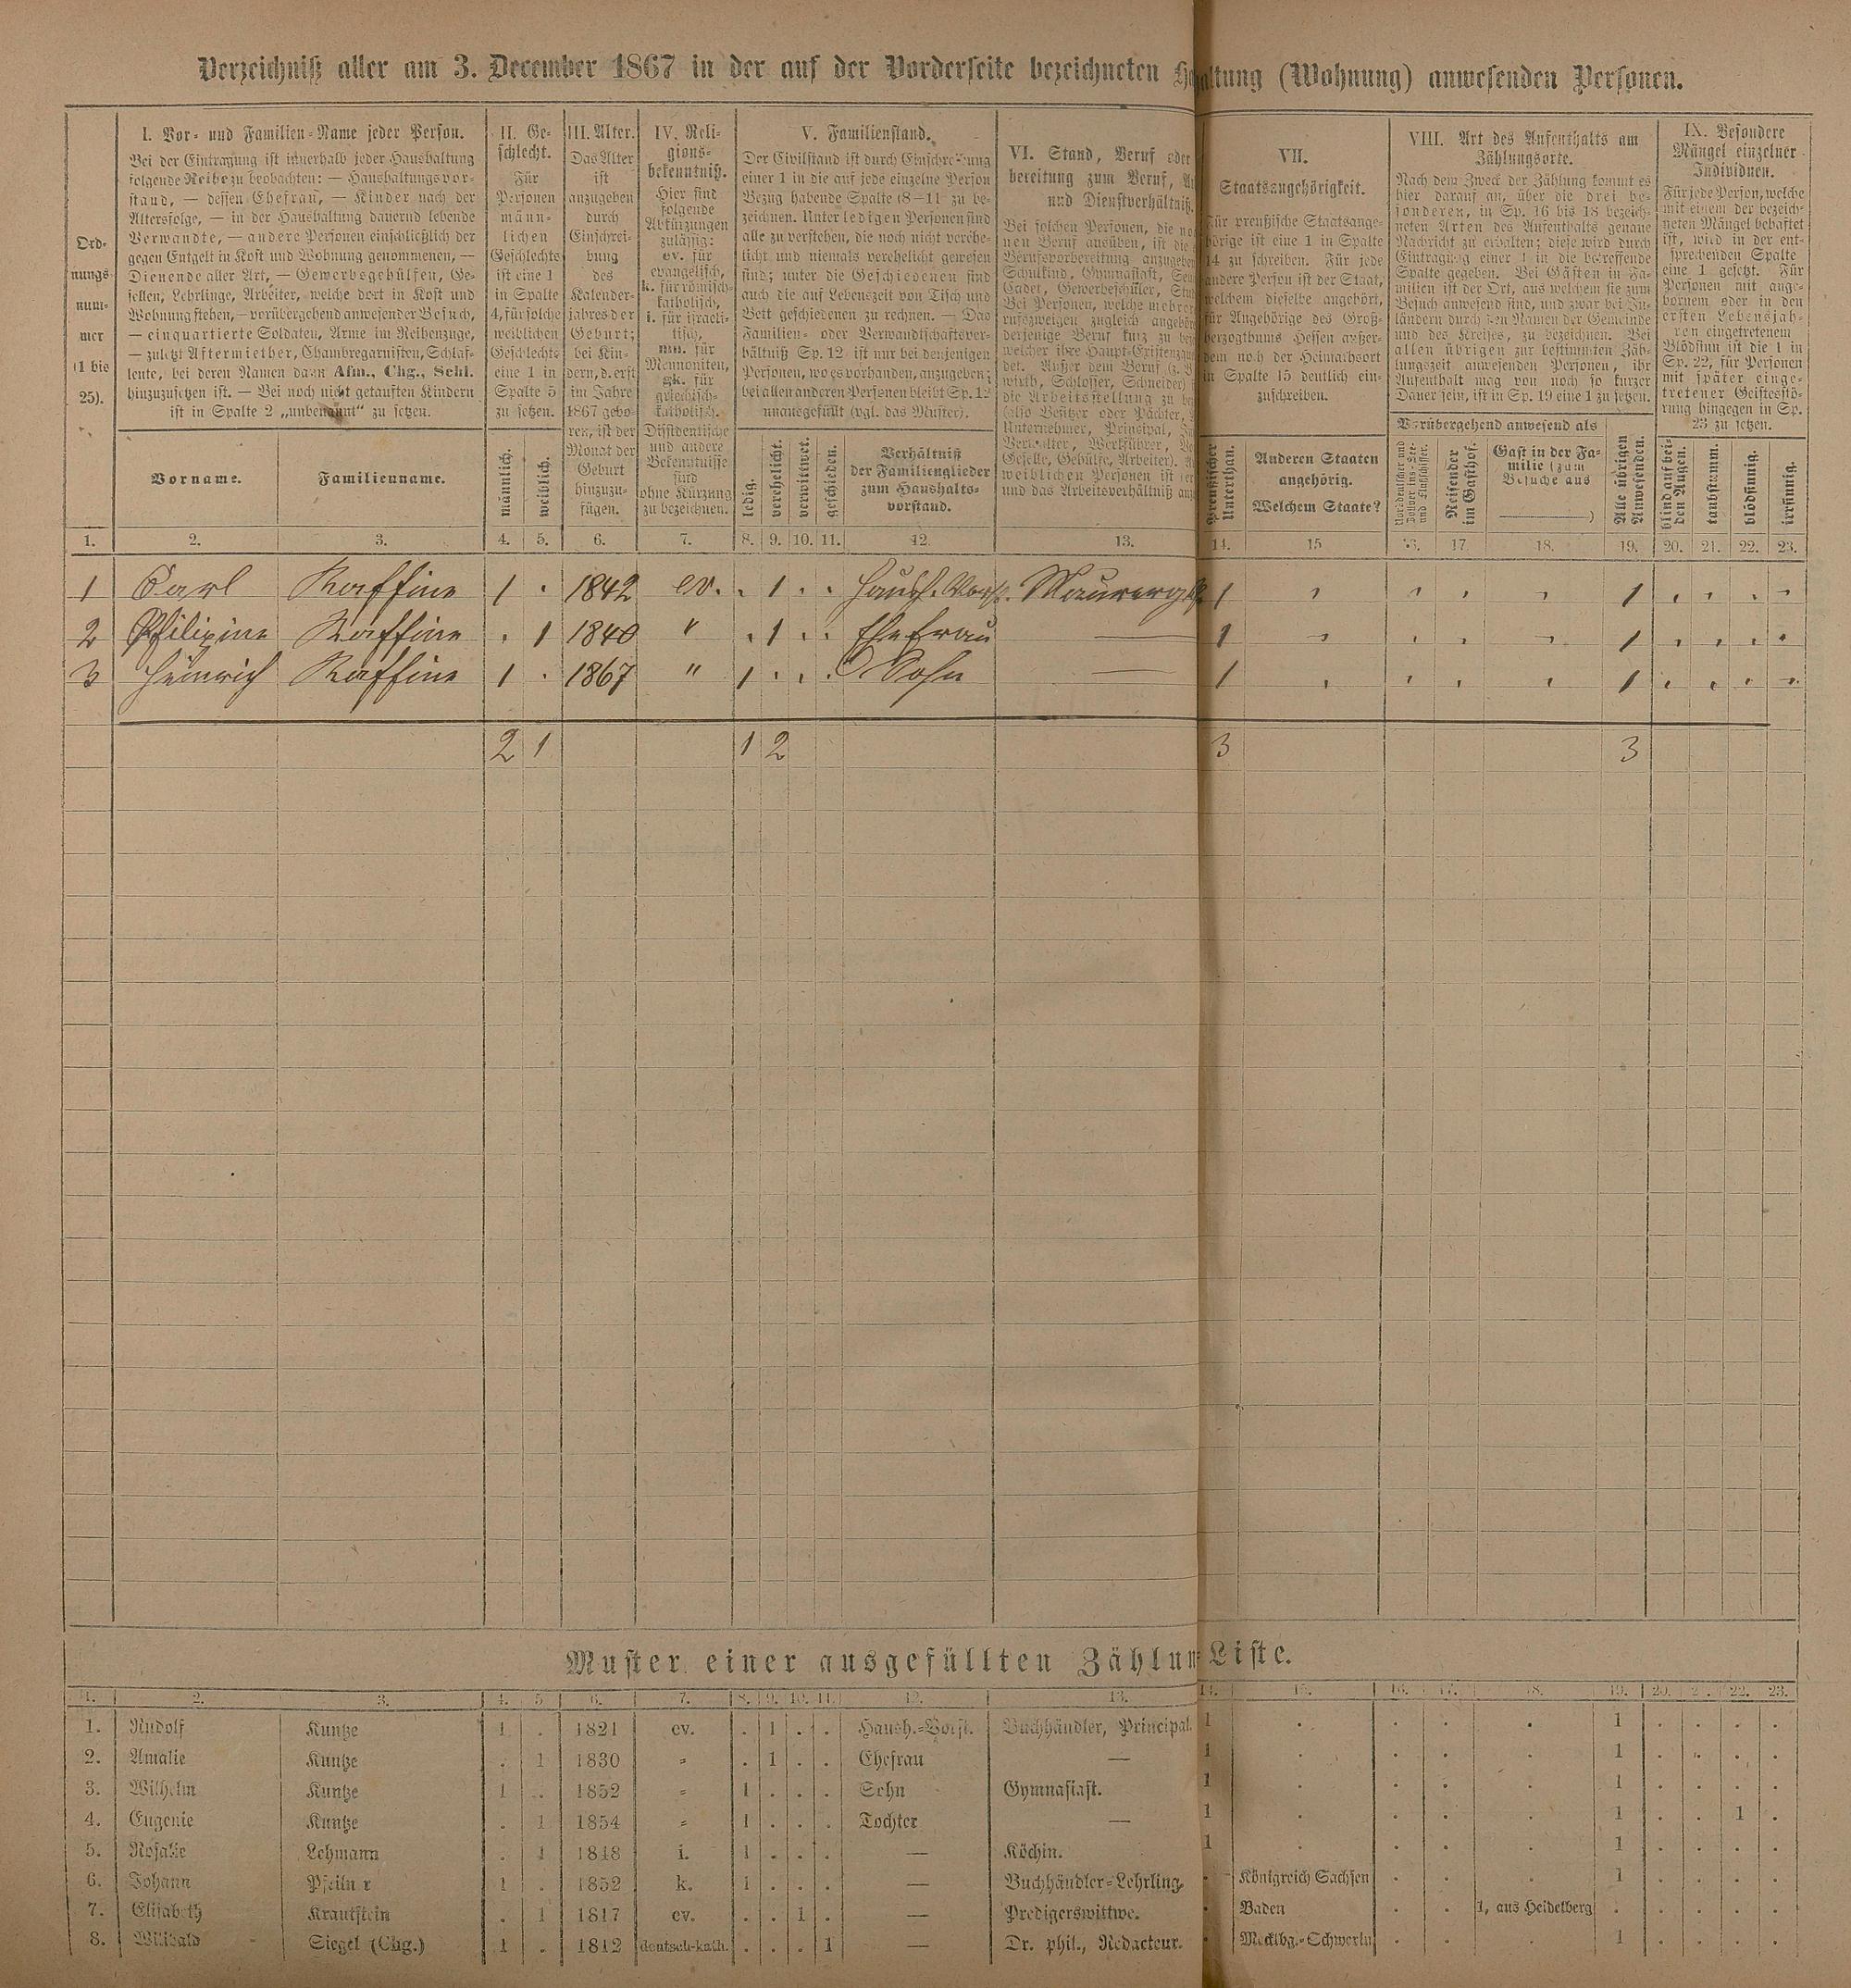 Verzeichniß aller am 3. December 1867 in der auf der Vorderseite bezeichneten Haltung (Wohnung) anwesenden Personen.
Ord-
nungs-
num-
mer
(1 bis
25).
I. Vor- und Familien-Name jeder Person.
Bei der Eintragung ist innerhalb jeder Haushaltung
folgende Reihe zu beobachten: — Haushaltungsvor-
stand, — dessen Ehefrau, — Kinder nach der
Altersfolge, — in der Haushaltung dauernd lebende
Verwandte, — andere Personen einschließlich der
gegen Entgelt in Kost und Wohnung genommenen, —
Dienende aller Art, — Gewerbsgehülfen, Ge-
sellen, Lehrlinge, Arbeiter, welche dort in Kost und
Wohnung stehen, — vorübergehend anwesender Besuch,
— einquartierte Soldaten, Arme im Reihenzuge,
— zuletzt Aftermiether, Chambregarnisten, Schlaf-
leute, bei deren Namen dann Afm., Chg., Schl.
hinzuzusetzen ist. — Bei noch nicht getauften Kindern
ist in Spalte 2 „unbenannt“ zu setzen.
Vorname.
Familienname.
II. Ge-
schlecht.
Für
Personen
männ-
lichen
Geschlechts
ist eine 1
in Spalte
4, für solche
weiblichen
Geschlechts
eine 1 in
Spalte 5
zu setzen.
männlich.
weiblich.
III. Alter.
Das Alter
ist
anzugeben
durch
Einschrei-
bung
des
Kalender-
jahres der
Geburt;
bei Kin-
dern, d. erst
im Jahre
1867 gebo-
ren, ist der
Monat der
Geburt
hinzuzu-
fügen.
IV. Reli-
gions-
bekenntniß.
Hier sind
folgende
Abkürzungen
zulässig:
ev. für
evangelisch,
k. für römisch-
katholisch,
i. für israeli-
tisch,
mn. für
Mennoniten,
gk. für
griechisch-
katholisch.
Dissidentische
und andere
Bekenntnisse
sind
ohne Kürzung
zu bezeichnen.
V. Familienstand.
Der Civilstand ist durch Einschreibung
einer 1 in die auf jede einzelne Person
Bezug habende Spalte (8—11) zu be-
zeichnen. Unter ledigen Personen sind
alle zu verstehen, die noch nicht verehe-
licht und niemals verehelicht gewesen
sind; unter die Geschiedenen sind
auch die auf Lebenszeit von Tisch und
Bett geschiedenen zu rechnen. — Das
Familien- oder Verwandtschaftsver-
hältniß Sp. 12 ist nur bei denjenigen
Personen, wo es vorhanden, anzugeben;
bei allen anderen Personen bleibt Sp. 12
unausgefüllt (vgl. das Muster).
ledig.
verehelicht.
verwittwet.
geschieden.
Verhältniß
der Familienglieder
zum Haushalts-
vorstand.
VI. Stand, Beruf oder
bereitung zum Beruf,
und Dienstverhältniß.
Bei solchen Personen, die
nen Beruf ausüben, ist die
Berufsvorbereitung anzugeben
Schulkind, Gymnasiast,
Cadet, Gewerbeschüler,
Bei Personen, welche mehre
rufszweigen zugleich angehör
derjenige Beruf kurz zu
welcher ihre Haupt-Existenz
det. Außer dem Beruf
wirth, Schlosser, Schneider)
die Arbeitsstellung zu
(also Besitzer oder Pächter,
Unternehmer, Principal,
Verwalter, Werkführer,
Geselle, Gehülfe, Arbeiter).
weiblichen Personen ist
und das Arbeitsverhältniß
VII.
Staatsangehörigkeit.
Für preußische Staatsange-
hörige ist eine 1 in Spalte
14 zu schreiben. Für jede
andere Person ist der Staat,
welchem dieselbe angehört,
für Angehörige des Groß-
herzogthums Hessen außer-
dem noch der Heimathsort
in Spalte 15 deutlich ein-
zuschreiben.
Preußischer
Unterthan.
Anderen Staaten
angehörig.
Welchem Staate?
VIII. Art des Aufenthalts am
Zählungsorte.
Nach dem Zweck der Zählung kommt es
hier darauf an, über die drei be-
sonderen, in Sp. 16 bis 18 bezeich-
neten Arten des Aufenthalts genaue
Nachricht zu erhalten; diese wird durch
Eintragung einer 1 in die betreffende
Spalte gegeben. Bei Gästen in Fa-
milien ist der Ort, aus welchem sie zum
Besuch anwesend sind, und zwar bei In-
ländern durch den Namen der Gemeinde
und des Kreises, zu bezeichnen. Bei
allen übrigen zur bestimmten Zäh-
lungszeit anwesenden Personen, ihr
Aufenthalt mag von noch so kurzer
Dauer sein, ist in Sp. 19 eine 1 zu setzen.
Vorübergehend anwesend als
Reisender
im Gasthof.
Gast in der Fa-
milie (zum
Besuche aus
)
Alle übrigen
Anwesenden.
IX. Besondere
Mängel einzelner
Individuen.
Für jede Person, welche
mit einem der bezeich-
neten Mängel behaftet
ist, wird in der ent-
sprechenden Spalte
eine 1 gesetzt. Für
Personen mit ange-
bornem oder in den
ersten Lebensjah-
ren eingetretenem
Blödsinn ist die 1 in
Sp. 22, für Personen
mit später einge-
tretener Geistesstö-
rung hingegen in Sp.
23 zu setzen.
blind auf bei-
den Augen.
taubstumm.
blödsinnig.
irrsinnig.
1. 2. 3. 4. 5. 6. 7. 8. 9. 10. 11. 12. 13. 14. 15 16. 17. 18. 19. 20. 21. 22. 23.
1 Carl Raffine 1 . 1842 ev. . 1 . . Haush. Vorst. Maurerges 1 1
2 Philipine Raffine . 1 1840 " . 1 . . Ehefrau — 1 1
3 Heinrich Raffine 1 . 1867 " 1 . . . Sohn — 1 1
2 1 1 2 3 3
Muster einer ausgefüllten Zählun Liste.
1. 2. 3. 4. 5 6. 7. 8. 9. 10. 11. 12. 13. 14. 15. 16. 17. 18. 19. 20. 2 . 22. 23.
1. Rudolf Kuntze 1 . 1821 ev. . 1 . . Haush.-Vorst. Buchhändler, Principal. 1 . . . . 1 . . . .
2. Amalie Kuntze . 1 1830 „ . 1 . . Ehefrau — 1 . . . . 1 . . . .
3. Wilhelm Kuntze 1 . 1852 „ 1 . . . Sohn Gymnasiast. 1 . . . . 1 . . . .
4. Eugenie Kuntze . 1 1854 „ 1 . . . Tochter — 1 . . . . 1 . . 1 .
5. Rosalie Lehmann . 1 1848 i. 1 . . . — Köchin. 1 . . . . 1 . . . .
6. Johann Pfeiln r 1 . 1852 k. 1 . . . — Buchhändler-Lehrling. . Königreich Sachsen . . . 1 . . . .
7. Elisabeth Krautstein . 1 1817 ev. . . 1 . — Predigerswittwe. . Baden . . 1, aus Heidelberg . . . . .
8. Willibald Siegel (Chg.) 1 . 1812 deutsch-kath. . . . 1 — Dr. phil., Redacteur. . Mecklbg.-Schwerin . . . 1 . . . .